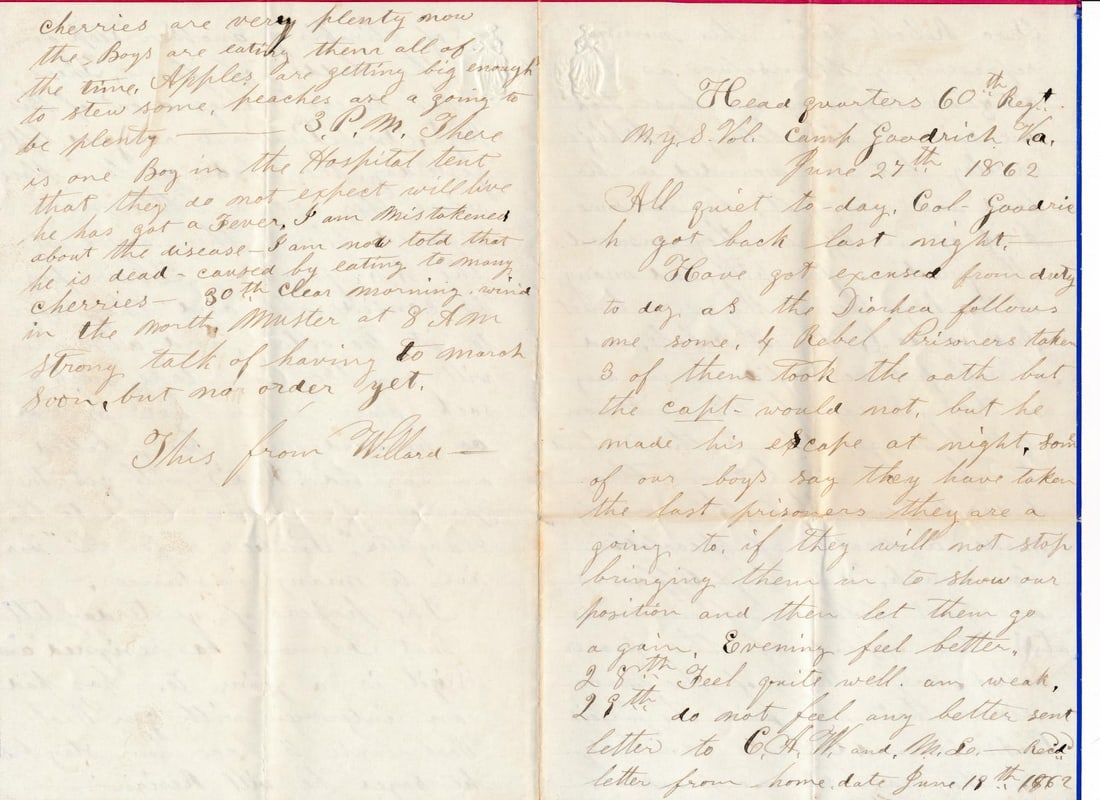 Head quarters 60th Regt.
N.Y.S. Vol. Camp Goodrich Va.
June 27th 1862
All quiet to-day. Col- Goodric
h got back last night.
Have got excused from duty
to day as the Diarhea follows
me some. 4 Rebel Prisoners taken
3 of them took the oath but
the capt- would not, but he
made his escape at night, som
of our boys say they have taken
the last prisoners they are a
going to, if they will not stop
bringing them in to show our
position and then let them go
a gain. Evening feel better.
28th Feel quite well. am weak,
29th do not feel any better sent
letter to C.A.W. and M.L. — Recd
letter from home date June 19th 1862
cherries are very plenty now
the Boys are eating them all of
the time. Apples are getting big enough
to stew some, peaches are a going to
be plenty —— 3. P.M. There
is one Boy in the Hospital tent
that they do not expect will live
he has got a Fever. I am mistakened
about the disease— I am now told that
he is dead - caused by eating to many
cherries— 30th Clear morning. wind
in the north. Muster at 8 AM
strong talk of having to march
soon, but no order yet.
This from Willard —